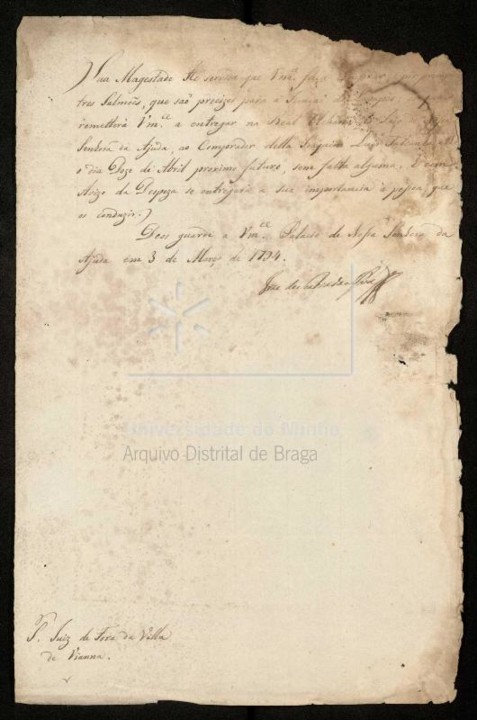 Sua Magestade He servida que Vm.ce faça
tres Salmões, que são precizos para a
remetterá Vm.ce a entregar no Real Palacio de N.
Senhora da Ajuda, ao Comprador della Joaquim
o dia Doze de Abril proximo futuro, sem falta alguma. E
da Despeza se entregará a sua importancia á pessoa, que
os conduzir.
Deos guarde a Vm.ce Palacio de Nossa Senhora da
Ajuda em 3 de Março de 1794.
Universidade do Minho
Arquivo Distrital de Braga
Sr. Juiz de Fora da Villa
de Vianna.